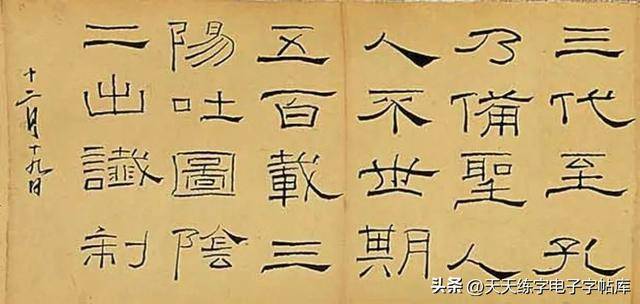 三代至孔
乃備聖人
人不世期
五百載三
陽吐圖陰
二出讖制
十二月十九日
头条@天天练字电子字帖库